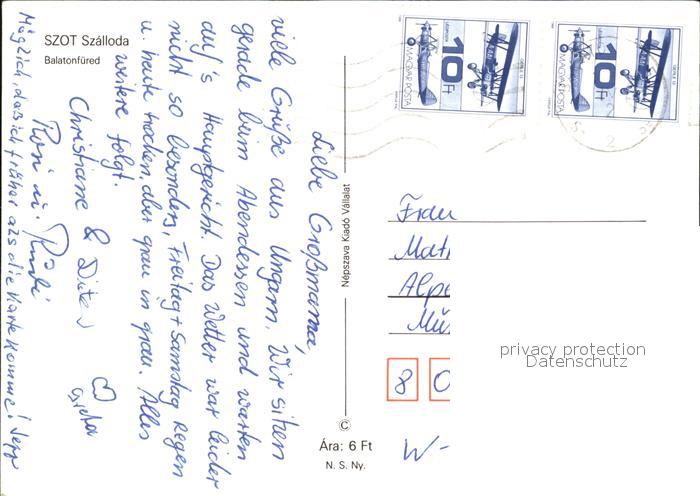 SZOT Szálloda
Balatonfüred
Liebe Großmama,
viele Grüße aus Ungarn. Wir sitzen
gerade beim Abendessen und warten
auf's Hauptgericht. Das Wetter war leider
nicht so besonders, Freitag + Samstag Regen
u. heute trocken aber grau in grau. Alles
weitere folgt.
Christiane & Dieter
Rosi u.
Möglich, dass ich früher als die Karte komme! Sepp
Népszava Kiadó Vállalat
©
Ára: 6 Ft
N. S. Ny.
10 Ft
MAGYAR POSTA
10 Ft
MAGYAR POSTA
Frau
Math
Alpe
Mün
8 0
W-
privacy protection
Datenschutz